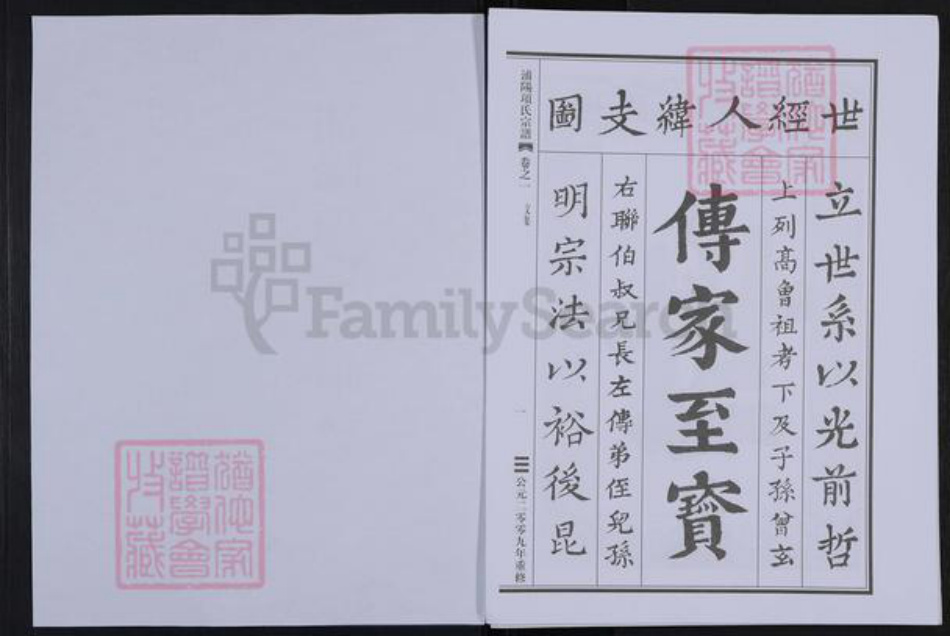 世經人緯支圖
立世系以光前哲
上列高曾祖考下及子孫曾玄
傳家至寶
右聯伯叔兄長左傳弟侄兒孫
明宗法以裕後昆
浦陽項氏宗譜
卷之一
一
公元二零零九年重修
FamilySearch
猶他家
譜學會
收藏
猶他家
譜學會
收藏